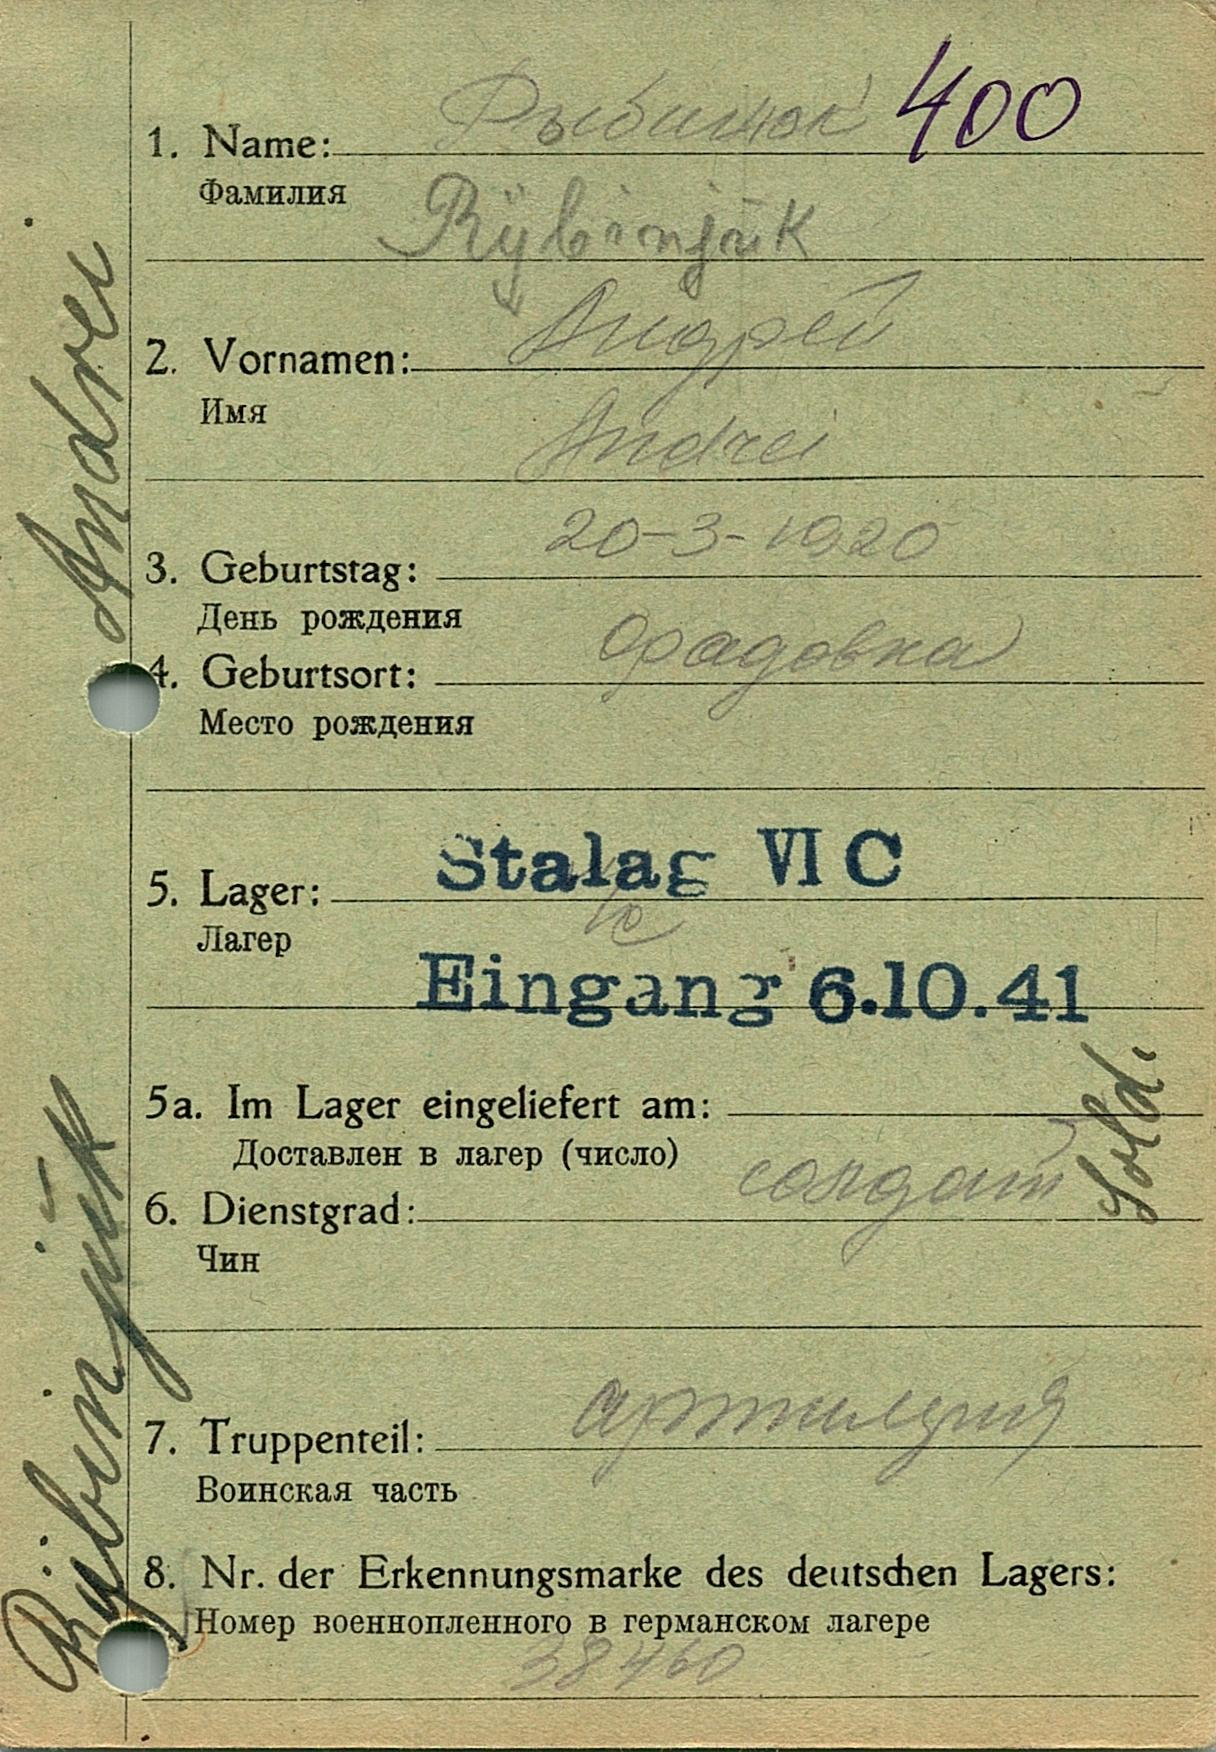 Рыбинюк 400
1. Name:
Фамилия
Rÿbinjuk
Андрей
2. Vornamen:
Имя
Andrei
20-3-1920
3. Geburtstag:
День рождения
Орадовка
4. Geburtsort:
Место рождения
Stalag VI C
5. Lager:
Лагер
Eingang 6.10.41
5a. Im Lager eingeliefert am:
Доставлен в лагер (число)
солдат
Sold.
6. Dienstgrad:
Чин
7. Truppenteil:
Воинская часть
8. Nr. der Erkennungsmarke des deutschen Lagers:
Номер военнопленного в германском лагере
38460
Rÿbinjuk Andrei